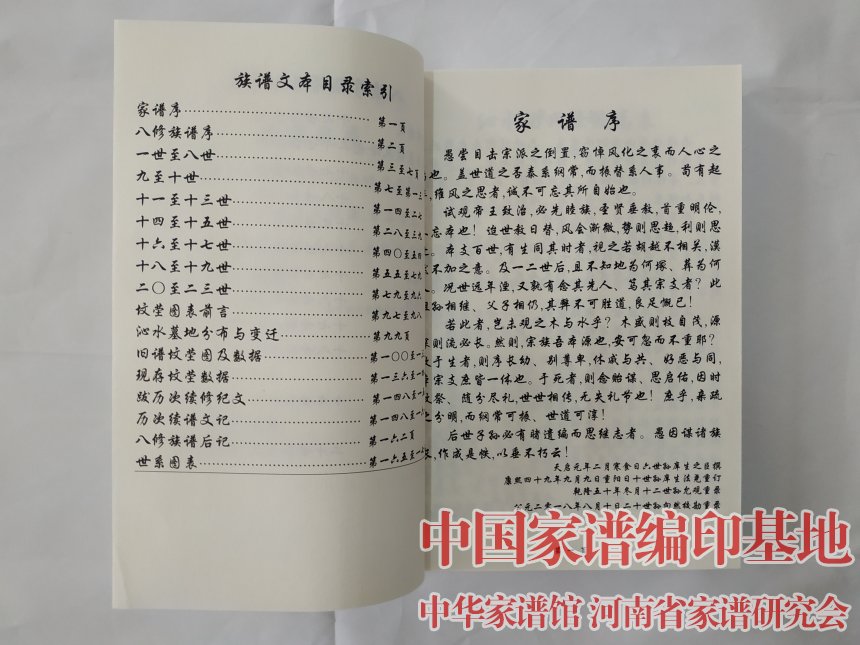 族谱文本目录索引
家谱序……第一頁
八修族谱序……第二頁
一世至八世……第三至七頁
九至十世……第七至第一三
十一至十三世……第一四至二七
十四至十五世……第二八至三九
十六至十七世……第四〇至五四
十八至十九世……第五五至七
二〇至二三世……第七九至九六
坟茔图表前言……第九七至九八
沁水墓地分布与变迁……第九九頁
旧谱坟茔图及数据……第一〇〇至一
现存坟茔数据……第一三六至一
跋历次续修纪文……第一四八至一
历次续谱文记……第一四八至一
八修族谱后记……第一六二頁
世系图表……第一六五至一
家谱序
愚尝目击宗派之倒置，窃悼风化之衰而人心之
也。盖世道之否泰系纲常，而振替系人事。苟有起
，维风之思者，诚不可忘其所自始也。
试观帝王致治，必先睦族，圣贤垂教，首重明伦，
忘本也！迨世教日替，风会渐微，势则思趋，利则思
本支百世，有生同其时者，视之若胡越不相关，漠
不加之意。及一二世后，且不知地为何塚、葬为何
。况世远年湮，又孰有念其先人、笃其宗支者？此
孙相继、父子相仍，其弊不可胜道，良足慨已！
若此者，岂未观之木与水乎？木盛则枝自茂，源
则流必长。然则，宗族吾本源也，安可忽而不重耶？
于生者，则序长幼、别尊卑，休戚与共、好恶与同，
宗支庶皆一体也。于死者，则念贻谋、思启佑，因时
祭、随分尽礼，世世相传，无失礼节也！庶乎，亲疏
分明，而纲常可振、世道可淳！
后世子孙必有睹遗编而思继志者。愚因谋诸族
，作成是帙，以垂不朽云！
天启元年二月寒食日六世孙庠生之臣撰
康熙四十九年九月九日重阳日十世孙庠生法尧重订
乾隆五十年冬月十二世孙允观重录
公元二零一八年八月十日二十世孙向然校勘重录
中国家谱编印基地
中华家谱馆 河南省家谱研究会